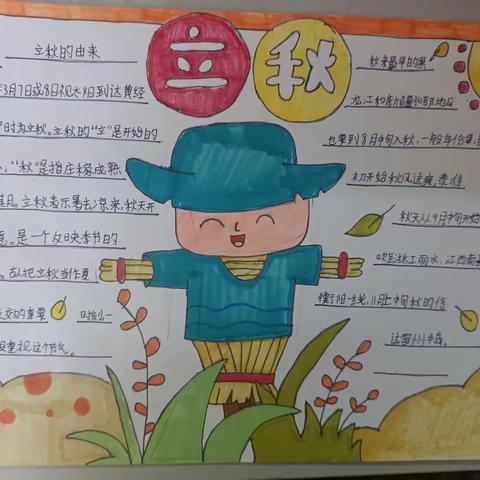 立秋
立秋的由来
年3月7日或8日视太阳到达黄经
时为立秋。立秋的“立”是开始的
，“秋”是指庄稼成熟
立秋表示暑去凉来，秋天开
是一个反映季节的
故把立秋当作夏
交的重要
重视这个节气。
秋来最早的黑
龙江和新疆北部地区
也要到8月中旬入秋，一般年份里，
初开始秋风送爽，秦淮
秋天从9月中旬开始
吹至浙江丽水、江西南
衡阳一线，11月上中旬秋的信
这雷州半岛。